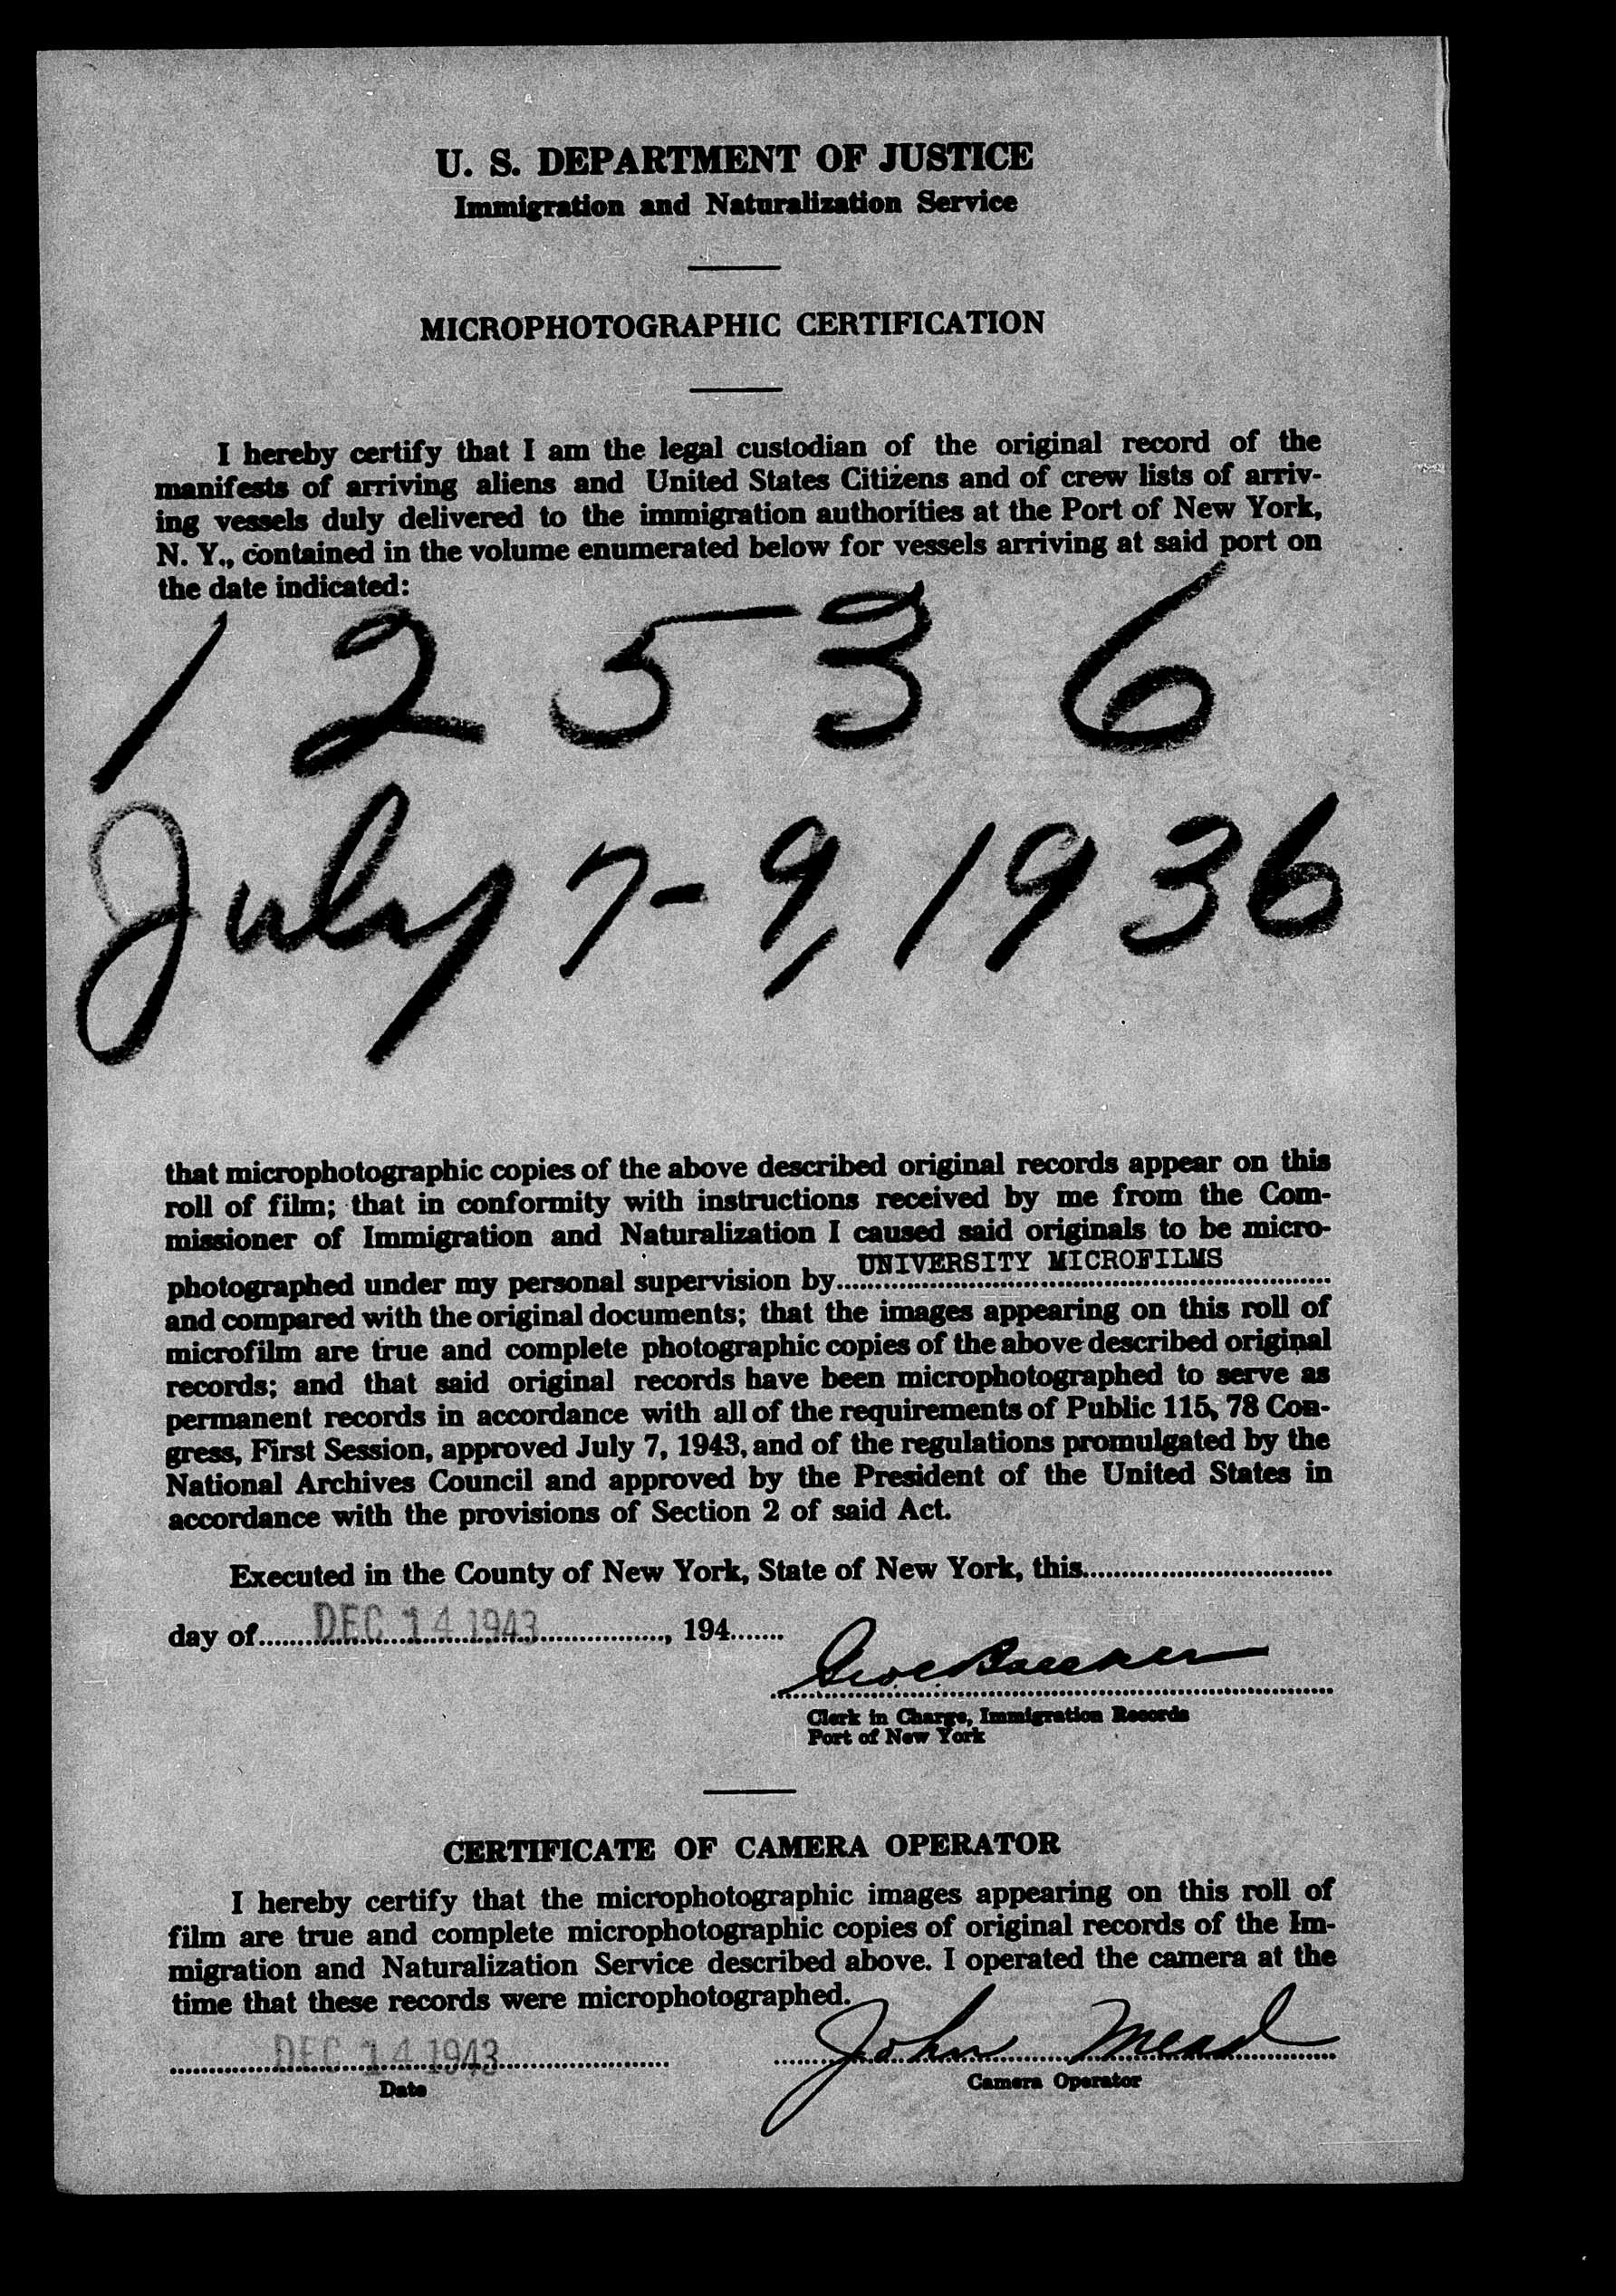 U. S. DEPARTMENT OF JUSTICE
Immigration and Naturalization Service
MICROPHOTOGRAPHIC CERTIFICATION
I hereby certify that I am the legal custodian of the original record of the
manifests of arriving aliens and United States Citizens and of crew lists of arriv-
ing vessels duly delivered to the immigration authorities at the Port of New York,
N. Y., contained in the volume enumerated below for vessels arriving at said port on
the date indicated:
12536
July 7-9, 1936
that microphotographic copies of the above described original records appear on this
roll of film; that in conformity with instructions received by me from the Com-
missioner of Immigration and Naturalization I caused said originals to be micro-
photographed under my personal supervision by UNIVERSITY MICROFILMS
and compared with the original documents; that the images appearing on this roll of
microfilm are true and complete photographic copies of the above described original
records; and that said original records have been microphotographed to serve as
permanent records in accordance with all of the requirements of Public 115, 78 Con-
gress, First Session, approved July 7, 1943, and of the regulations promulgated by the
National Archives Council and approved by the President of the United States in
accordance with the provisions of Section 2 of said Act.
Executed in the County of New York, State of New York, this
day of DEC 14 1943, 194
Clerk in Charge, Immigration Records
Port of New York
CERTIFICATE OF CAMERA OPERATOR
I hereby certify that the microphotographic images appearing on this roll of
film are true and complete microphotographic copies of original records of the Im-
migration and Naturalization Service described above. I operated the camera at the
time that these records were microphotographed.
DEC 14 1943 John Mead
Date Camera Operator